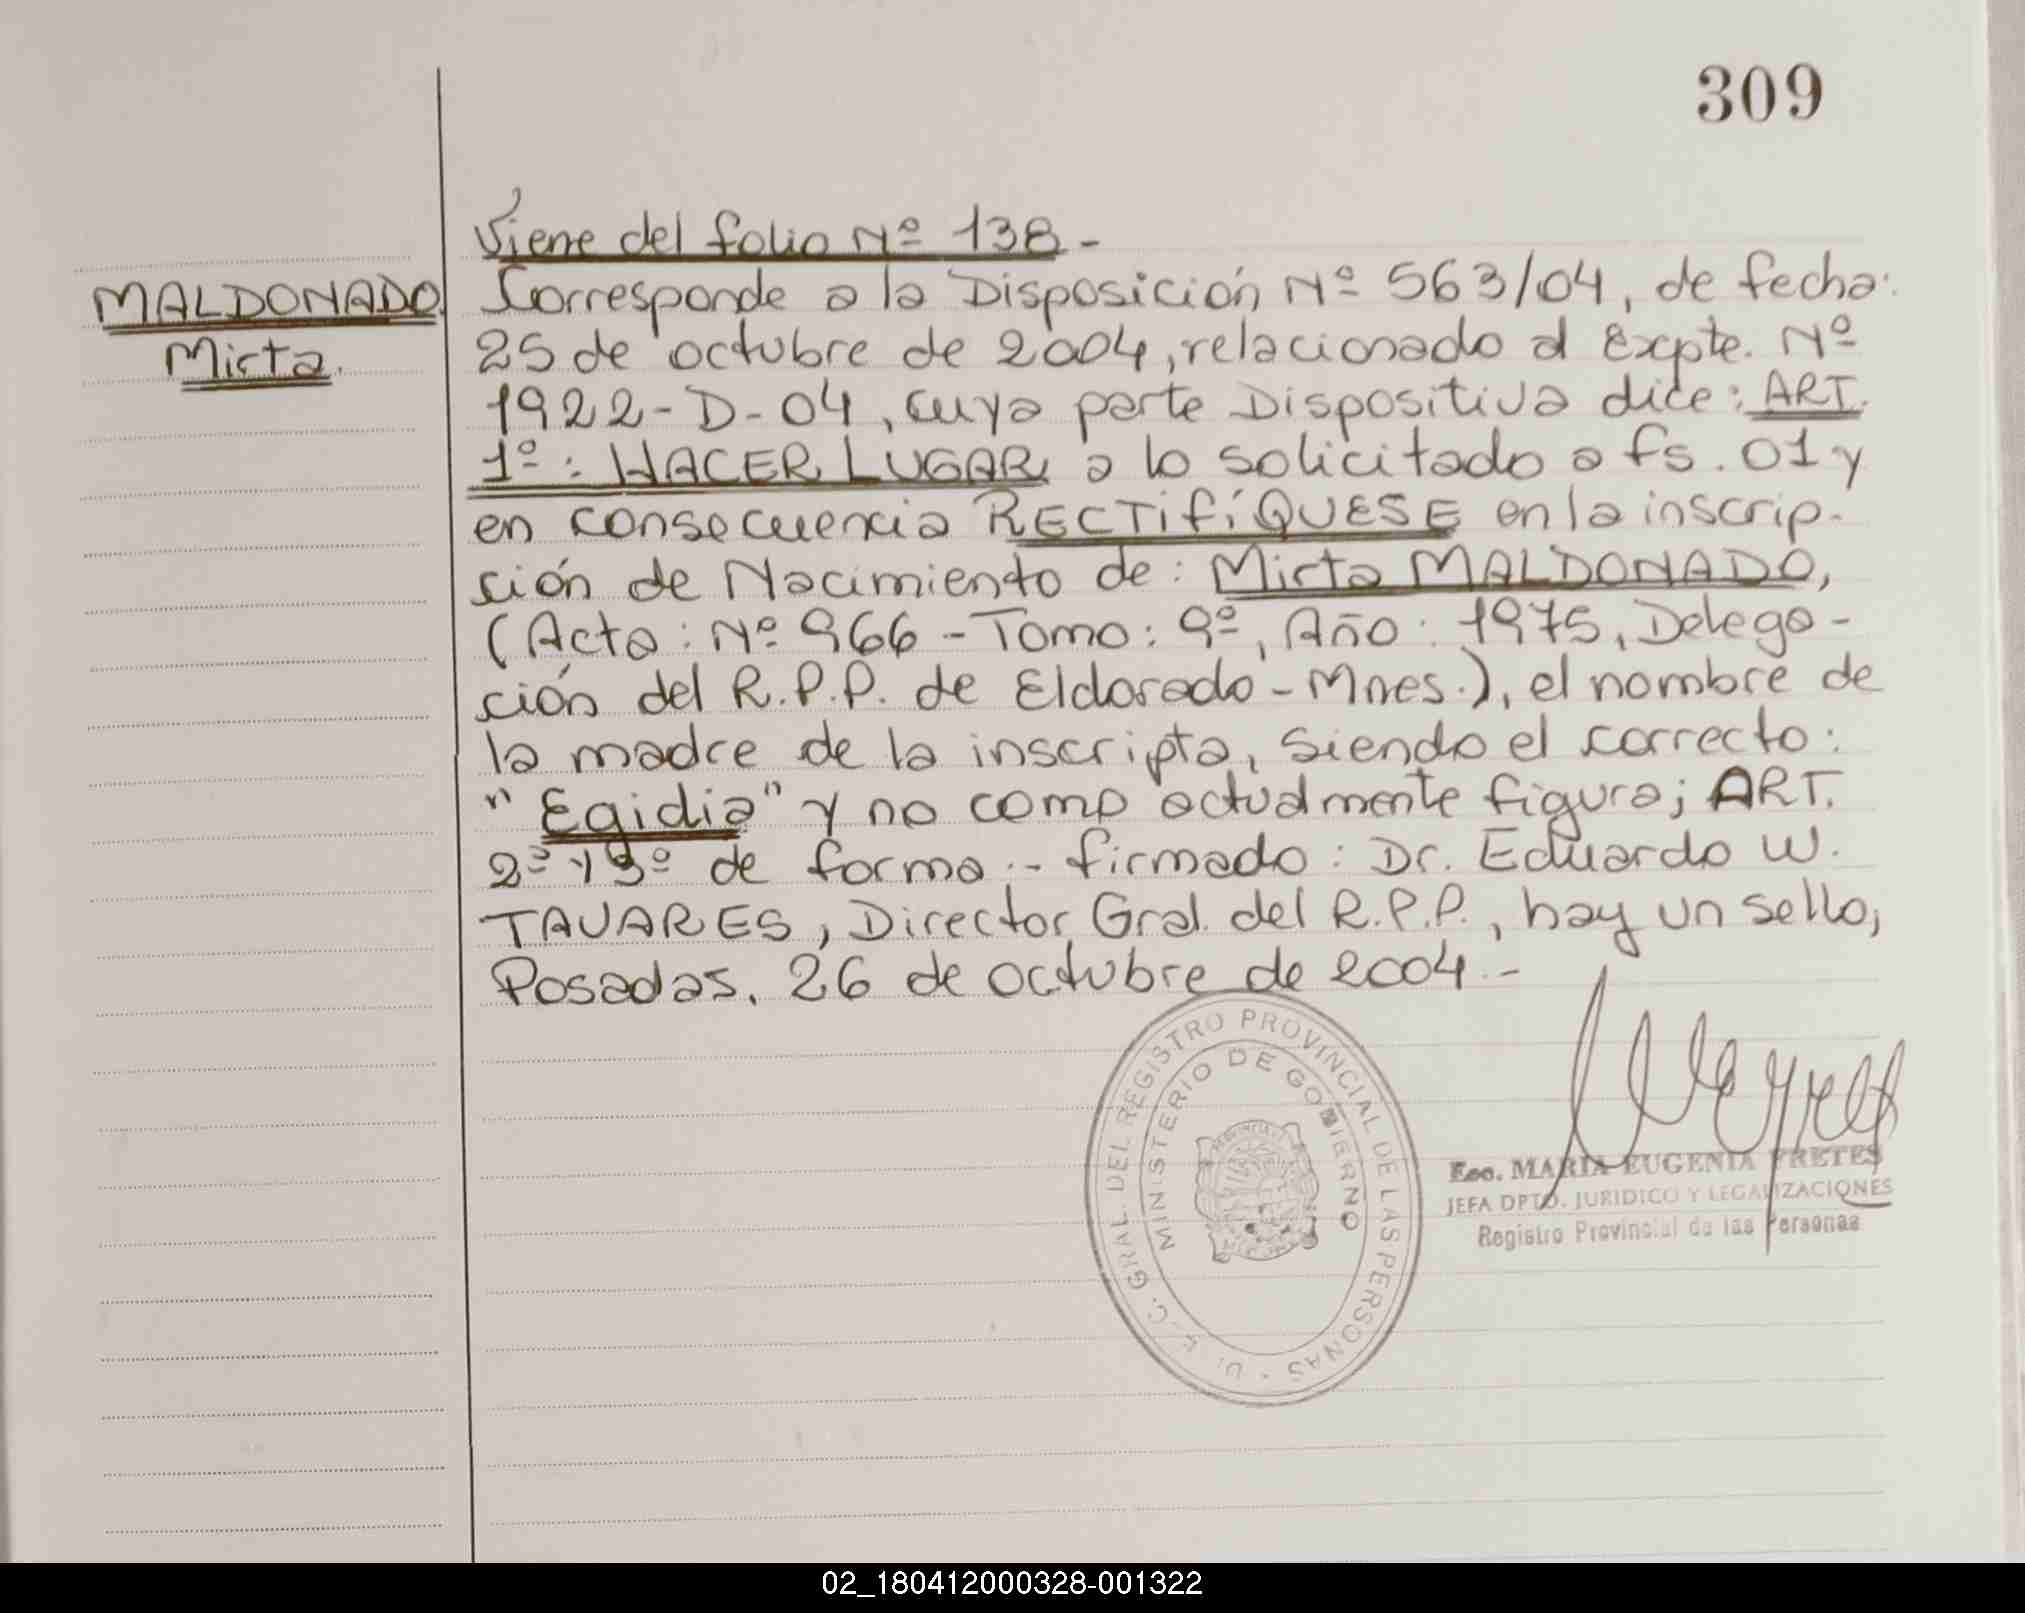 309
MALDONADO.
Mirta.
Viene del folio Nº 138-
Corresponde a la Disposición Nº 563/04, de fecha:
25 de octubre de 2004, relacionado al Expte. Nº
1922-D-04, cuya parte Dispositiva dice: ART.
1º: HACER LUGAR a lo solicitado a fs. 01 y
en consecuencia RECTIFÍQUESE en la inscrip-
ción de Nacimiento de: Mirta MALDONADO,
(Acta: Nº 966 - Tomo: 9º, Año: 1975, Delega-
ción del R.P.P. de Eldorado - Mnes.), el nombre de
la madre de la inscripta, siendo el correcto:
"Egidia" y no como actualmente figura; ART.
2º y 3º de forma.- firmado: Dr. Eduardo W.
TAVARES, Director Gral. del R.P.P., hay un sello,
Posadas, 26 de octubre de 2004.-
GRAL. DEL REGISTRO PROVINCIAL DE LAS PERSONAS
MINISTERIO DE GOBIERNO
Esc. MARIA EUGENIA FRETES
JEFA DPTO. JURIDICO Y LEGALIZACIONES
Registro Provincial de las Personas
02_180412000328-001322